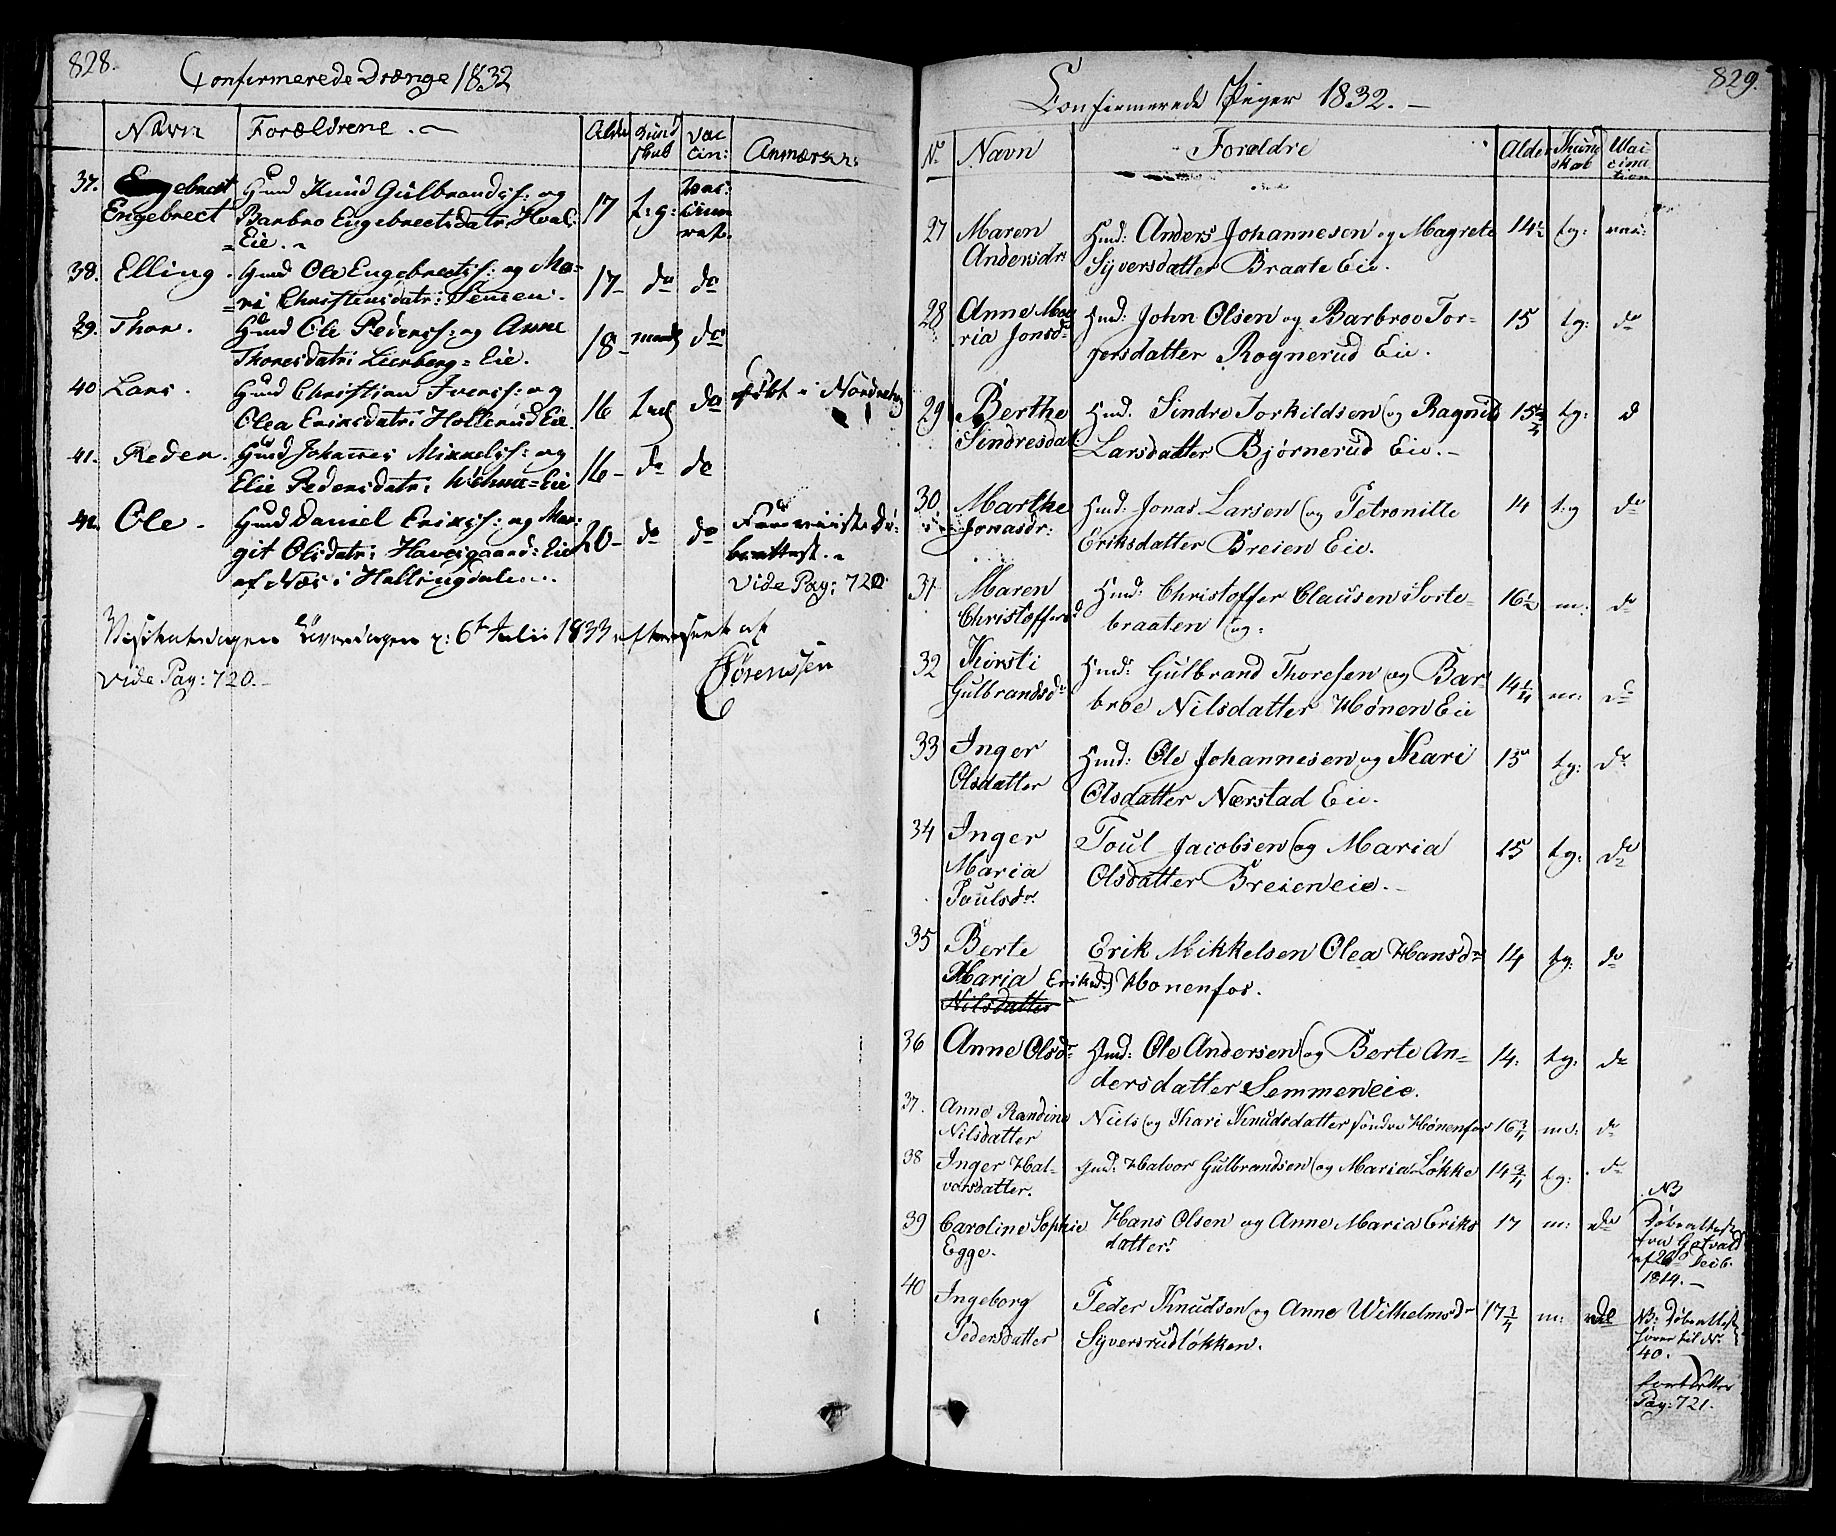 828.
Confirmerede Drænge 1832
Navn Forældrene . Alder Kund skab Vac cin: Anmærkn:
37. Engebrect Hmd Knud Gulbrandss: og 17 t: g: vac:
Engebrect Barbro Engebrectsdatr: Hval= cine
Eie. ret.
38. Elling . Hmd Ole Engebrectss: og Ma= 17 do do
ri Christensdatr: Semen.
39. Thor. Hmd Ole Pederss: og Anne 18 do
Thoresdatr: Lierberg= Eie.
40 Lars. Hmd Christian Iverss: og 16 do født i
Olea Eriksdatr: Hollerud Eie.
41. Peder. Hmd Johannes Mikkelss: og 16 do do
Elie Pedersdatr: Eie
42. Ole . Hmd Daniel Erikss: og Mar= 20 do do
git Olsdatr: Eie
af Næs i Hallingdalen. vide Pag: 720
6te Julii 1833 af
vide Pag: 720. Sørenssen
829.
Confirmerede Piger 1832.
No Navn Forældre Alder Kund skab Vaccina tion
27 Maren Hmd: Anders Johannesen og Magrete 14½ tg: vac:
Andersdr: Syversdatter Braate Eie.
28 Anne Ma Hmd: John Olsen og Barbroe Tor= 15 tg: do
ria Jonsdr gersdatter Rognerud Eie.
29 Berthe Hmd. Sindre Torkildsen og Ragnild 15¾ tg: d
Sindresdat Larsdatter Bjørnerud Eie.
30 Marthe Hmd: Jonas Larsen og Petronille 14 t:g do
Jonasdr: Eriksdatter Breien Eie.
31 Maren Hmd: Christoffer Clausen Sorte= 16½ m: do
Christoffersd braaten og:
32 Kirsti Hmd: Gulbrand Thoresen og Bar= 14¼ m: do
Gulbrandsdr broe Nilsdatter Hønen Eie
33 Inger Hmd: Ole Johannesen og Kari 15 tg: do
Olsdatter Olsdatter Nærstad Eie.
34 Inger Poul Jacobsen og Maria 15 tg: do
Maria Olsdatter Breieneie.
Paulsdr.
35 Berte Erik Mikkelsen Olea Hansdr 14 tg: do
Maria Eriksd: Hønenfos.
Nilsdatter
36 Anne Olsdr Hmd: Ole Andersen og Berte An= 14: tg: do
dersdatter Semmeneie.
37. Anne Randine Niels og Kari Knudsdatter søndre Hønenfos 16¾ m: do
Nilsdatter
38 Inger Hal= Hmd: Halvor Gulbrandsen og Maria Løkke 14¾ tg: do
vorsdatter.
39 Caroline Sophie Hans Olsen og Anne Maria Eriks 17 m: do NB Døbeattest
Egge. datter: fra af 26de Decb. 1814.
40 Ingeborg Peder Knudsen og Anne Wilhelmsdr 17¾ m: NB: Døbeattest
Pedersdatter Syversrudløkken. hører til No 40.
fortsættes
Pag: 721.